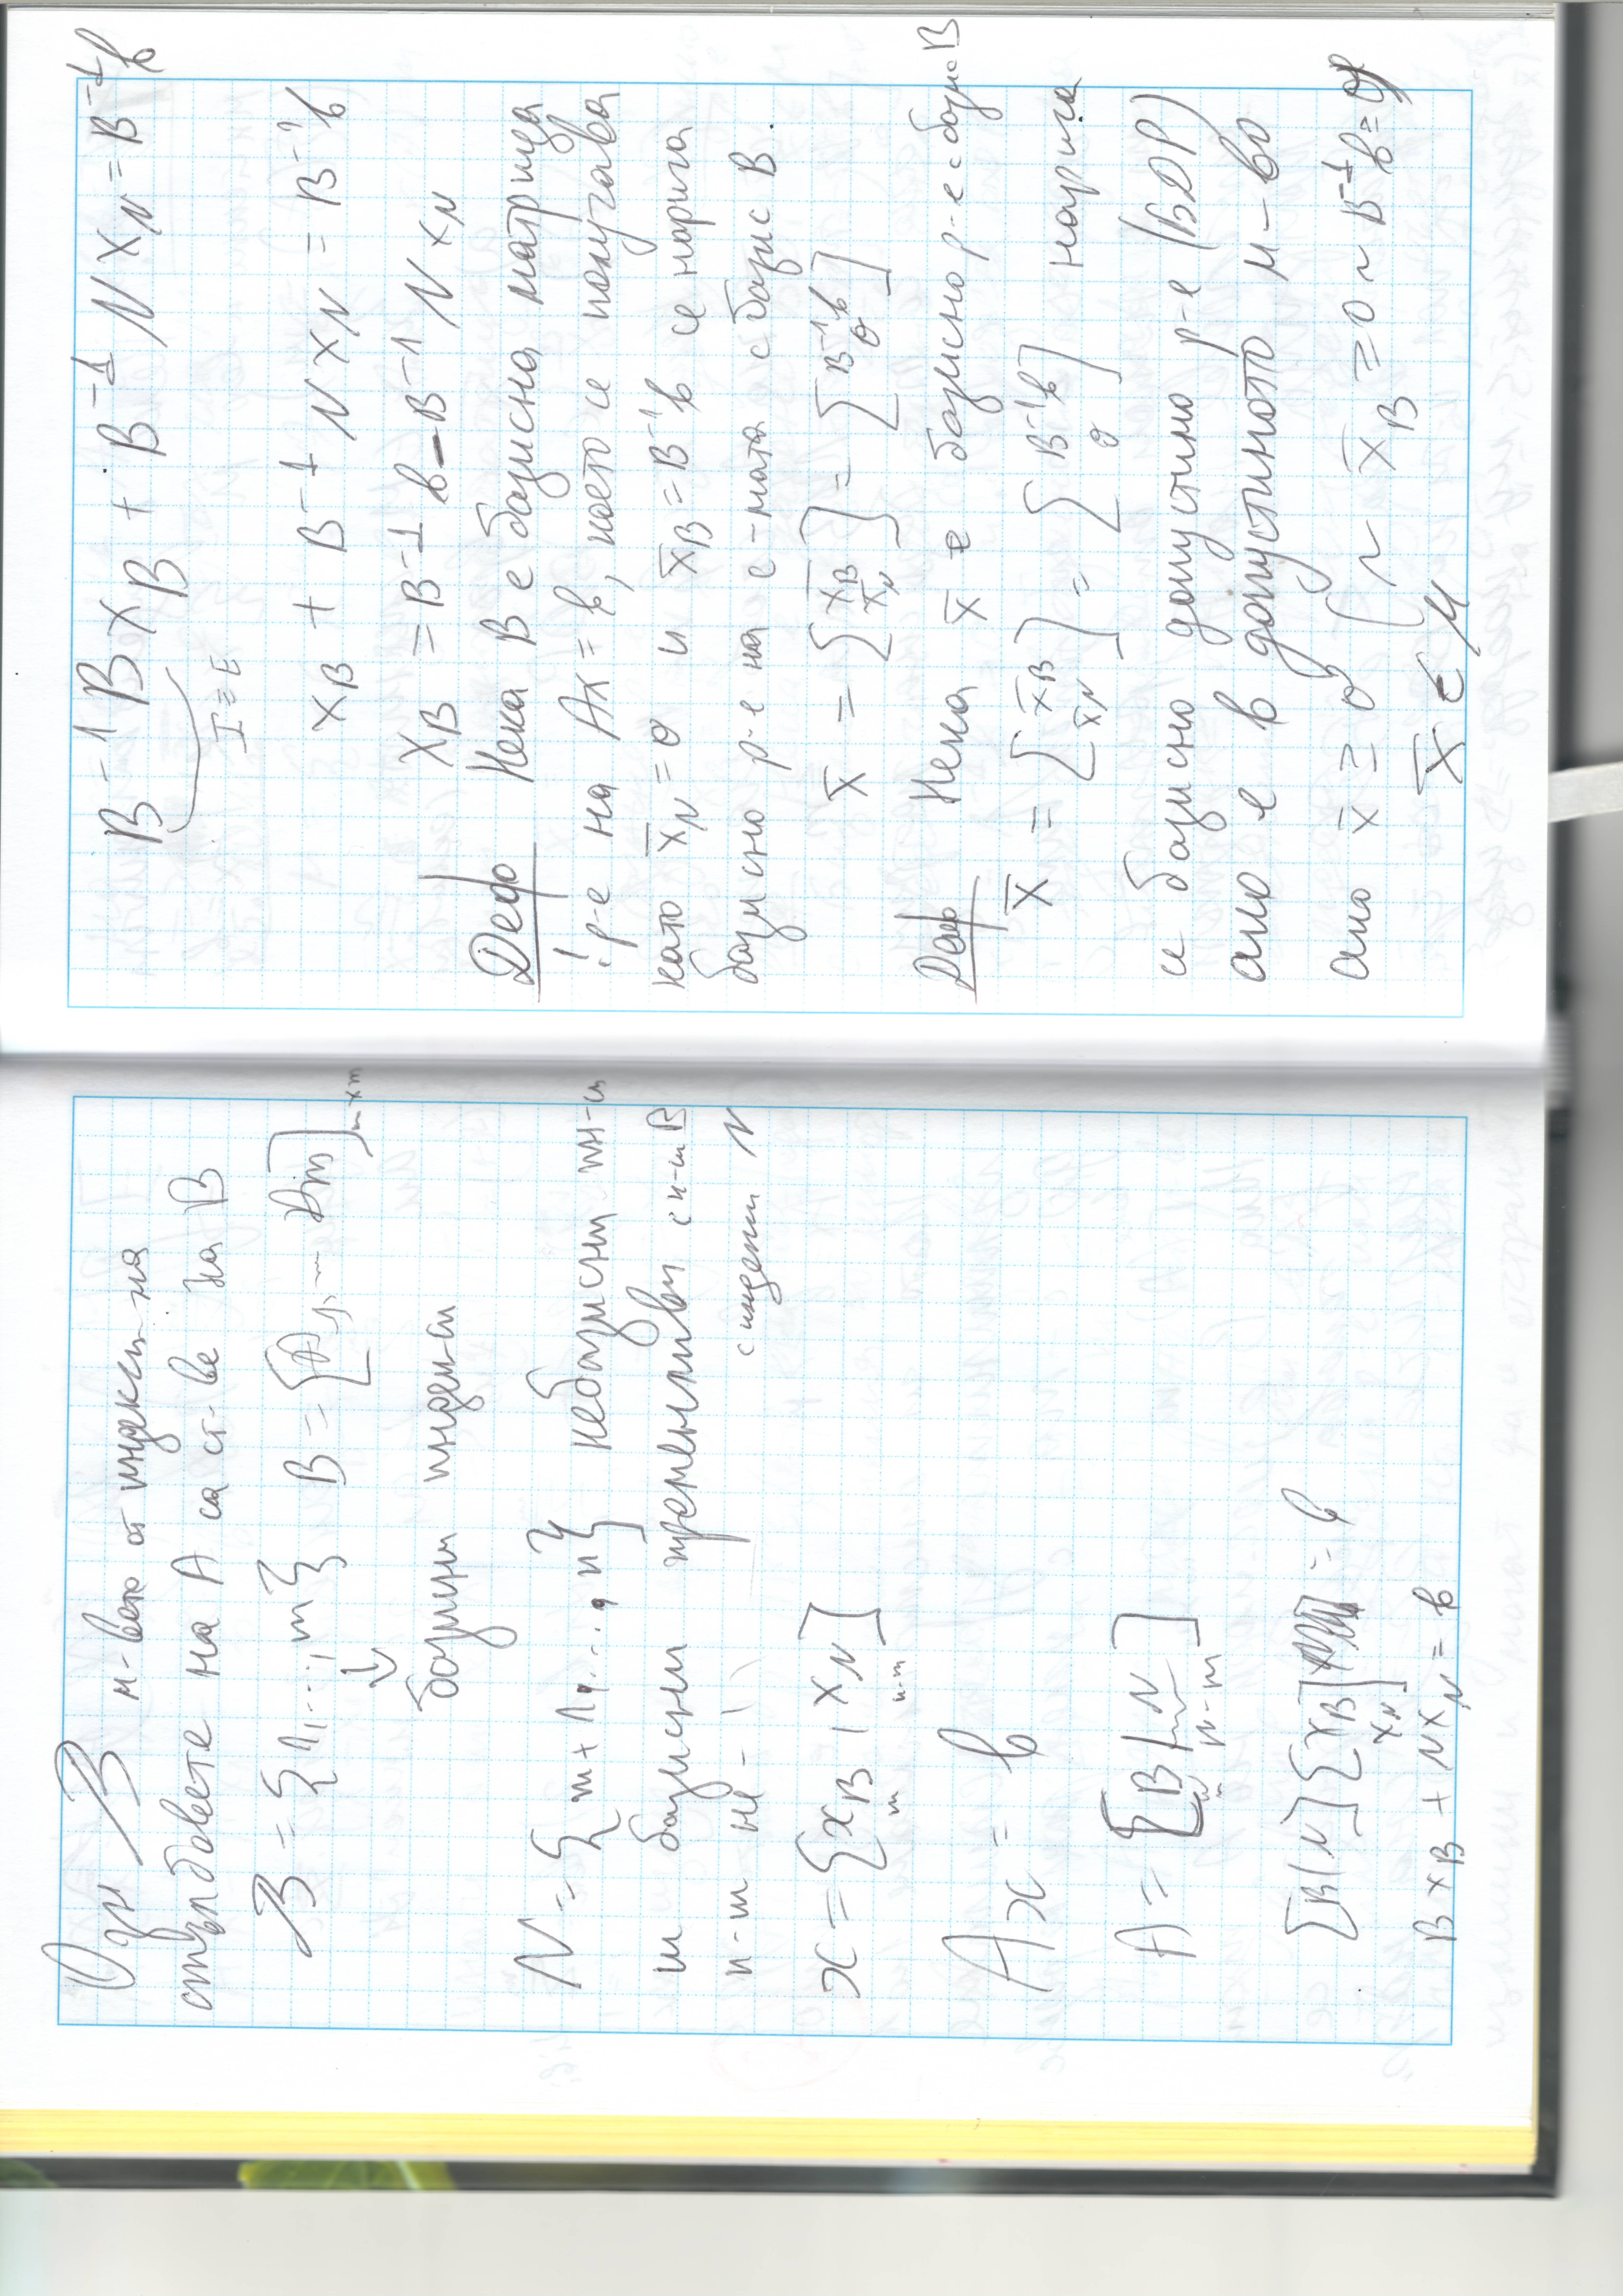 Озн 𝓑 м-вото от индекси на
стълбовете на A съст-ве на B
𝓑 = {1, ..., m} B = [A1, ... Am] m×m
↓
базисни индекси
N = {m+1, ..., n}
m базисни
небазисни
n-m
променливи
с индекси N
x = [xB, xN]
m n-m
Ax = b
A = [B | N]
m n-m
[B | N] [xB xN] = b
BxB + NxN = b
B⁻¹BxB + B⁻¹NxN = B⁻¹b
I ≡ E
xB + B⁻¹NxN = B⁻¹b
xB = B⁻¹b - B⁻¹NxN
Деф Нека B е базисна матрица
! р-е на Ax = b, което се получава
като x̄N = 0 и x̄B = B⁻¹b се нарича
базисно р-е на с-мата с базис B.
x̄ = [x̄B x̄N] = [B⁻¹b 0]
Деф Нека x̄ е базисно р-е с базис B
x̄ = [x̄B x̄N] = [B⁻¹b 0] нарича
се базисно допустимо р-е (БДР)
ако е в допустимото м-во
ако x̄ ≥ 0 { ~ x̄B ≥ 0 ~ B⁻¹b ≥ 0
x̄ ∈ M